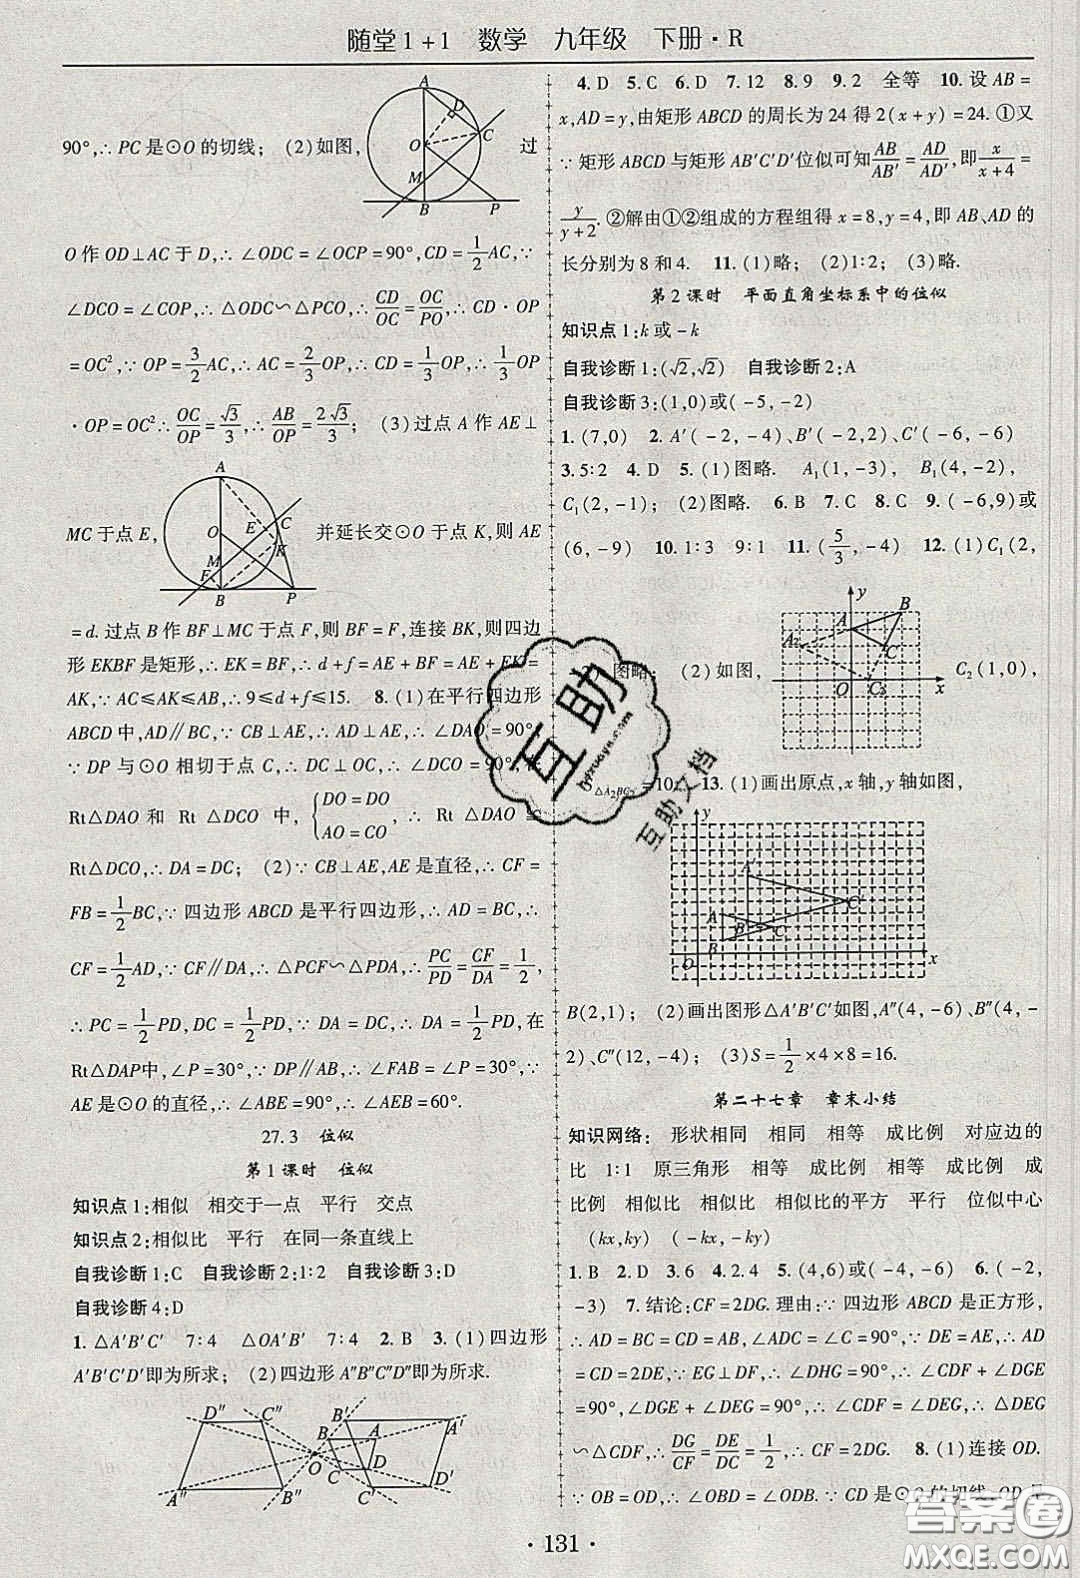 随堂1+1 数学 九年级 下册·R
90°,∴PC是⊙O的切线；(2)如图,
A
D
C
O
M
B
P
过
O作OD⊥AC于D,∴∠ODC=∠OCP=90°,CD=1/2AC,∵
∠DCO=∠COP,∴△ODC∽△PCO,∴CD/OC=OC/PO,∴CD·OP
=OC²,∵OP=3/2AC,∴AC=2/3OP,∴CD=1/3OP,∴1/3OP
·OP=OC²∴OC/OP=√3/3,∴AB/OP=2√3/3；(3)过点A作AE⊥
MC于点E,
A
O
E
C
K
M
F
B
P
并延长交⊙O于点K,则AE
=d.过点B作BF⊥MC于点F,则BF=F,连接BK,则四边
形EKBF是矩形,∴EK=BF,∴d+f=AE+BF=AE+EK=
AK,∵AC≤AK≤AB,∴9≤d+f≤15. 8.(1)在平行四边形
ABCD中,AD∥BC,∵CB⊥AE,∴AD⊥AE,∴∠DAO=90°
∵DP与⊙O相切于点C,∴DC⊥OC,∴∠DCO=90°,
Rt△DAO和Rt△DCO中,{DO=DO AO=CO,∴Rt△DAO≌
Rt△DCO,∴DA=DC；(2)∵CB⊥AE,AE是直径,∴CF=
FB=1/2BC,∵四边形ABCD是平行四边形,∴AD=BC,∴
CF=1/2AD,∵CF∥DA,∴△PCF∽△PDA,∴PC/PD=CF/DA=1/2,
∴PC=1/2PD,DC=1/2PD,∵DA=DC,∴DA=1/2PD,在
Rt△DAP中,∠P=30°,∵DP∥AB,∴∠BAE=∠P=30°,∵
AE是⊙O的直径,∴∠ABE=90°,∴∠AEB=60°.
27.3 位似
第1课时 位似
知识点1:相似 相交于一点 平行 交点
知识点2:相似比 平行 在同一条直线上
自我诊断1:C 自我诊断2:1:2 自我诊断3:D
自我诊断4:D
1.△A′B′C′ 7:4 △OA′B′ 7:4 2.B 3.(1)四边形
A′B′C′D′即为所求；(2)四边形A″B″C″D″即为所求.
D″
C″
B′
A′
B
A
O
C
D
A″
B″
C′
D′
4.D 5.C 6.D 7.12 8.9 9.2 全等 10.设AB=
x,AD=y,由矩形ABCD的周长为24得2(x+y)=24.①又
∵矩形ABCD与矩形AB′C′D′位似可知AB/AB′=AD/AD′,即x/(x+4)=
y/(y+2).②解由①②组成的方程组得x=8,y=4,即AB、AD的
长分别为8和4. 11.(1)略；(2)1:2；(3)略.
第2课时 平面直角坐标系中的位似
知识点1:k或-k
自我诊断1:(√2,√2) 自我诊断2:A
自我诊断3:(1,0)或(-5,-2)
1.(7,0) 2.A′(-2,-4)、B′(-2,2)、C′(-6,-6)
3.5:2 4.D 5.(1)图略. A₁(1,-3), B₁(4,-2),
C₁(2,-1)；(2)图略. 6.B 7.C 8.C 9.(-6,9)或
(6,-9) 10.1:3 9:1 11.(5/3,-4) 12.(1)C₁(2,
图略；(2)如图,
y
B
A
A₂
C
O
C₂
x
C₂(1,0),
△A₂BC₂=10; 13.(1)画出原点,x轴,y轴如图,
y
A′
A
C′
B′
C
B
O
x
B(2,1)；(2)画出图形△A′B′C′如图,A″(4,-6)、B″(4,-
2)、C″(12,-4)；(3)S=1/2×4×8=16.
第二十七章 章末小结
知识网络：形状相同 相同 相等 成比例 对应边的
比 1:1 原三角形 相等 成比例 相等 成比例 成
比例 相似比 相似比 相似比的平方 平行 位似中心
(kx,ky) (-kx,-ky)
1.B 2.D 3.6 4.2.4 5.(4,6)或(-4,-6) 6.(-2,
-3) 7.结论:CF=2DG.理由:∵四边形ABCD是正方形,
∴AD=BC=CD=AB,∠ADC=∠C=90°,∵DE=AE,∴
AD=CD=2DE,∵EG⊥DF,∴∠DHG=90°,∴∠CDF+∠DGE
=90°,∠DGE+∠DEG=90°,∴∠CDF=∠DEG,∴△DEG
∽△CDF,∴DG/CF=DE/DC=1/2,∴CF=2DG. 8.(1)连接OD.
∵OB=OD,∴∠OBD=∠ODB.∵CD是⊙O的切线,OD是
·131·
互助
hzzuoye.com
互助文档
答案圈
MXQE.COM